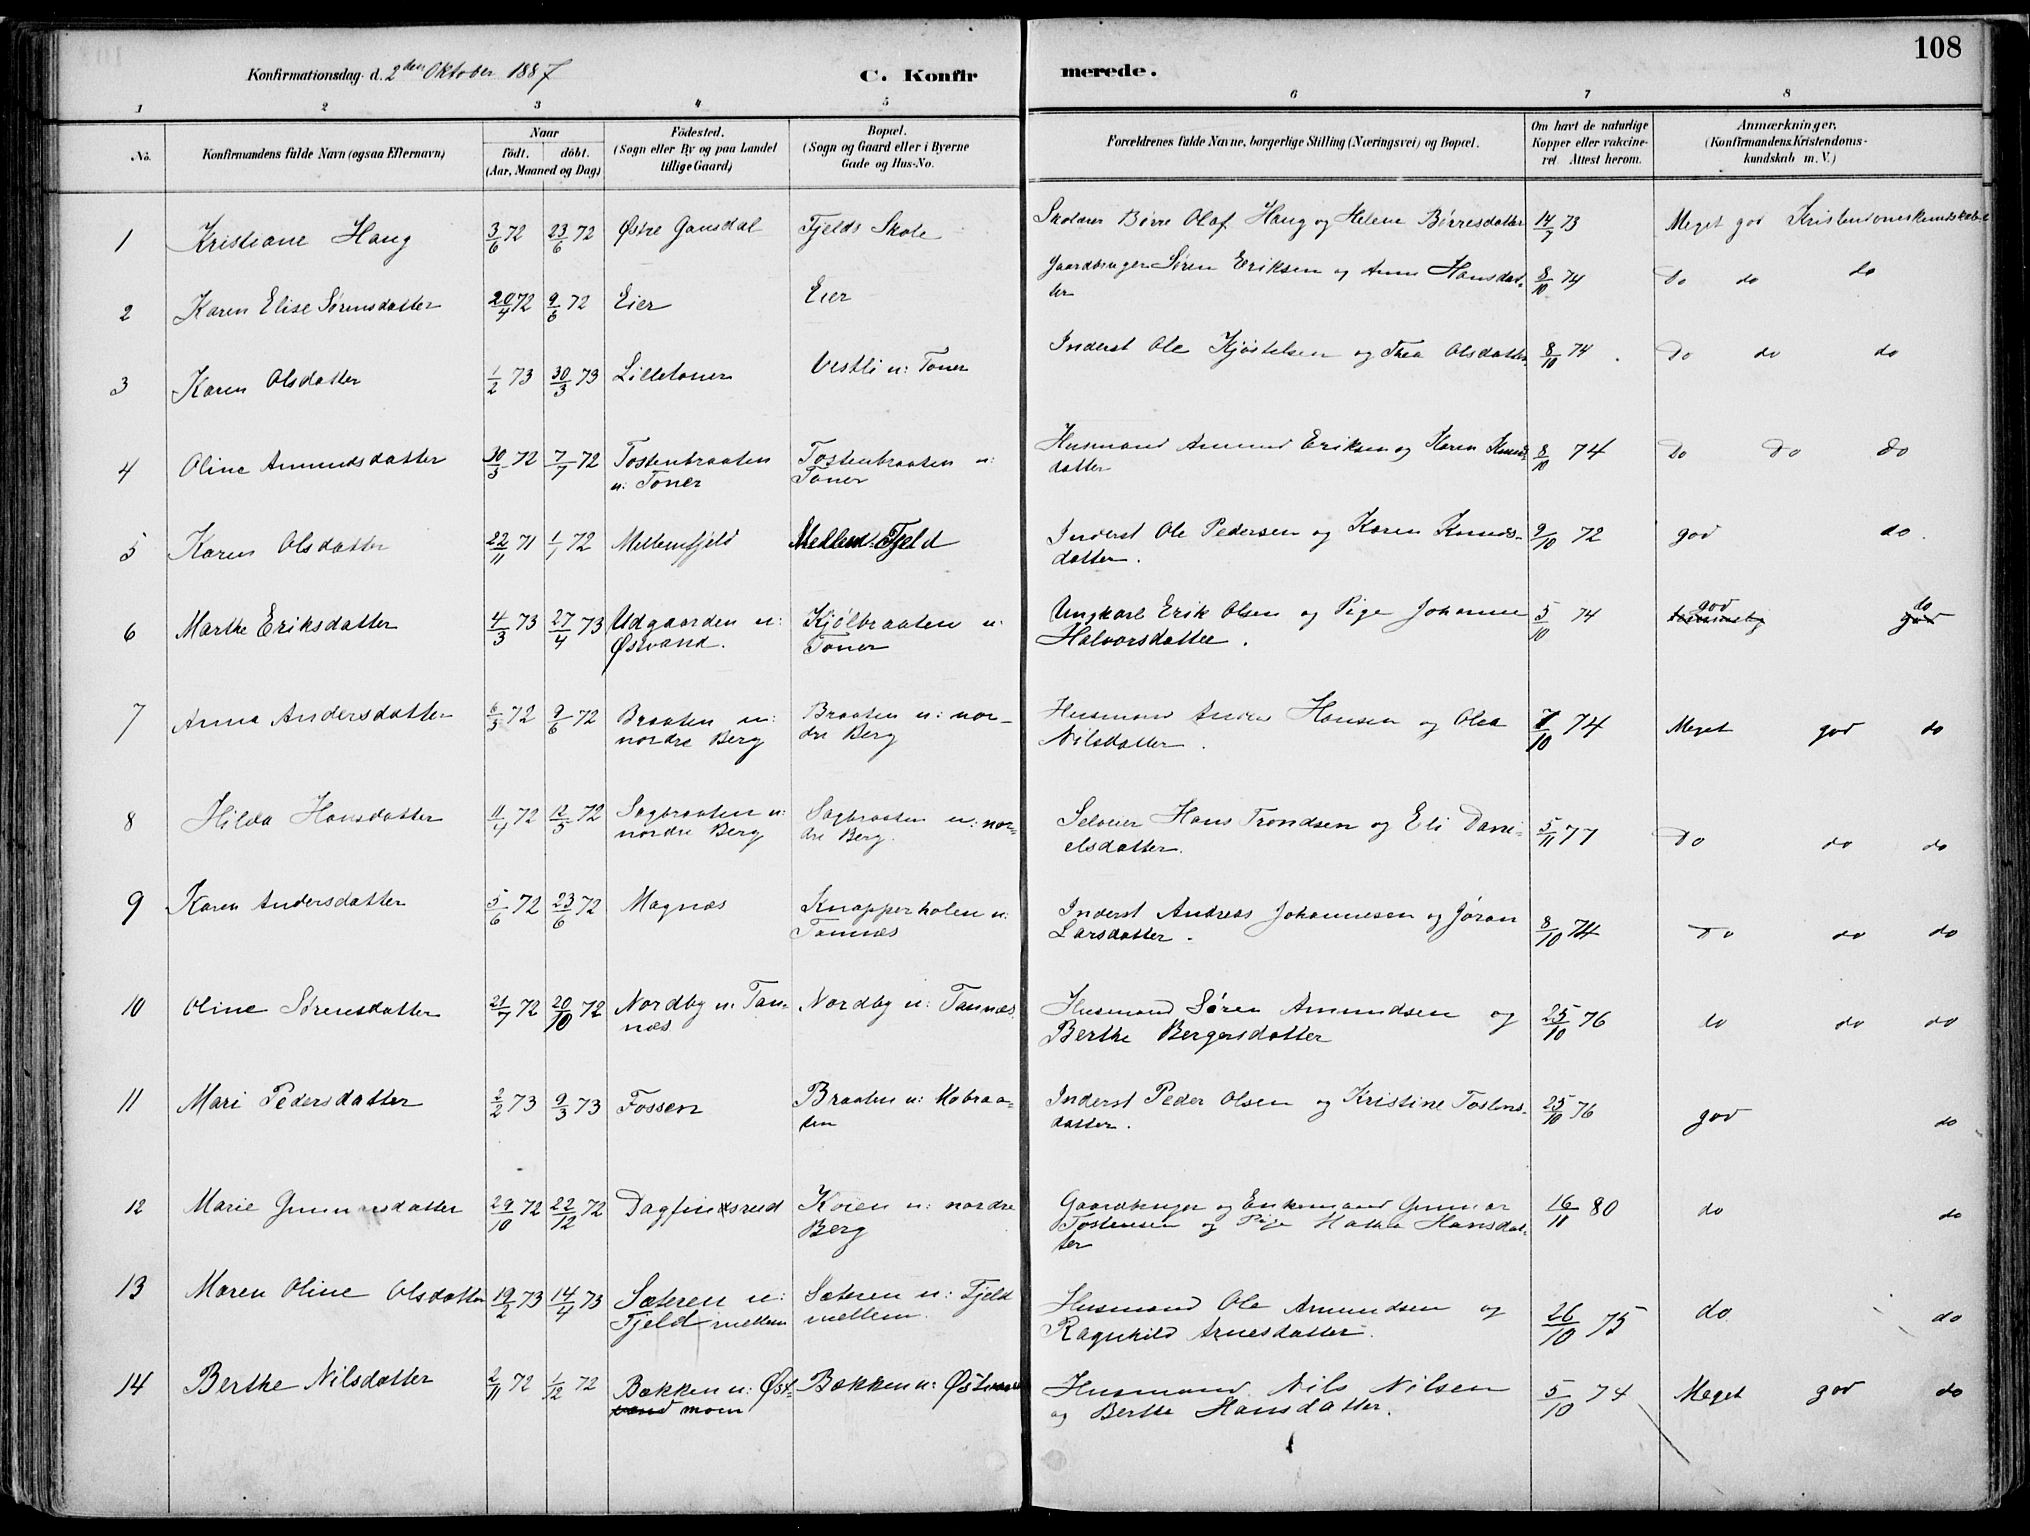 108
Konfirmationsdag d. 2den Oktober 1887
C. Konfirmerede.
1 2 3 4 5 6 7 8
No. Konfirmandens fulde Navn (ogsaa Efternavn) Naar födt. döbt. (Aar, Maaned og Dag) Födested. (Sogn eller By og paa Landet tillige Gaard) Bopæl. (Sogn og Gaard eller i Byerne Gade og Hus-No. Forældrenes fulde Navne, borgerlige Stilling (Næringsvei) og Bopæl. Om havt de naturlige Kopper eller vakcineret Attest herom. Anmærkninger. (Konfirmandens Kristendomskundskab m. V.)
1 Kristiane Haug 3/6 72 23/6 72 Østre Gansdal Fjelds Skole Skolærer Börre Olaf Haug og Helene Börresdatter 14/7 73 Meget god Kristendomskundskab
2 Karen Elise Sörensdatter 20/4 72 9/6 72 Eier Eier Gaardbruger Sören Eriksen og Anne Hansdatter 8/10 74 do do do
3 Karen Olsdatter 1/2 73 30/3 73 Lilletoner Vestli u: Toner Inderst Ole Kjöstelsen og Thea Olsdatter 8/10 74 do do do
4 Oline Amundsdatter 30/5 72 7/7 72 Tostenbraaten u: Toner Tostenbraaten u: Toner Husmand Amund Eriksen og Karen Knudsdatter 8/10 74 do do do
5 Karen Olsdatter 22/11 71 1/1 72 Mellemfjeld Mellem Fjeld Inderst Ole Pedersen og Karen Knudsdatter. 9/10 72 god do.
6 Marthe Eriksdatter 4/3 73 27/4 73 Udgaarden u: Østvand. Kjölbraaten u: Toner Ungkarl Erik Olsen og Pige Johanne Halvorsdatter. 5/10 74 god do god
7 Anna Andersdatter 6/5 72 9/6 72 Braaten u: nordre Berg Braaten u: nordre Berg Husmand Anders Hansen og Olea Nilsdatter. 7/10 74 Meget god do
8 Hilda Hansdatter 11/4 72 12/5 72 Sagbraaten u: nordre Berg Sagbraaten u: nordre Berg. Selveier Hans Trondsen og Eli Danielsdatter. 5/11 77 do do do
9 Karen Andersdatter 5/6 72 23/6 72 Magnæs Knapperholen u: Tannæs Inderst Andreas Johannesen og Jöran Larsdatter. 8/10 74 do do do
10 Oline Sörensdatter 21/7 72 20/10 72 Nordby u: Tannæs Nordby u: Tannæs. Husmand Sören Amundsen og Berthe Bergersdatter 25/10 76 do do do
11 Mari Pedersdatter 2/2 73 9/3 73 Fossen Braaten u: Mobraaten Inderst Peder Olsen og Kristine Tostensdatter. 25/10 76 god do
12 Marie Gunnarsdatter 29/10 72 22/12 72 Dagfindsrud Koien u: nordre Berg Gaardbruger og Enkemand Gunnar Tostensen og Pige Hansdatter 16/11 80 do do
13 Maren Oline Olsdatter 19/2 73 14/4 73 Sæteren u: Fjeld mellem Sæteren u: Fjeld mellem. Husmand Ole Amundsen og Ragnhild Arnesdatter. 26/10 75 do do
14 Berthe Nilsdatter 2/11 72 1/12 72 Bakken u: Øst-vand moen Bakken u: Østmoen Husmand Nils Nilsen og Berthe Hansdatter. 5/10 74 Meget god do